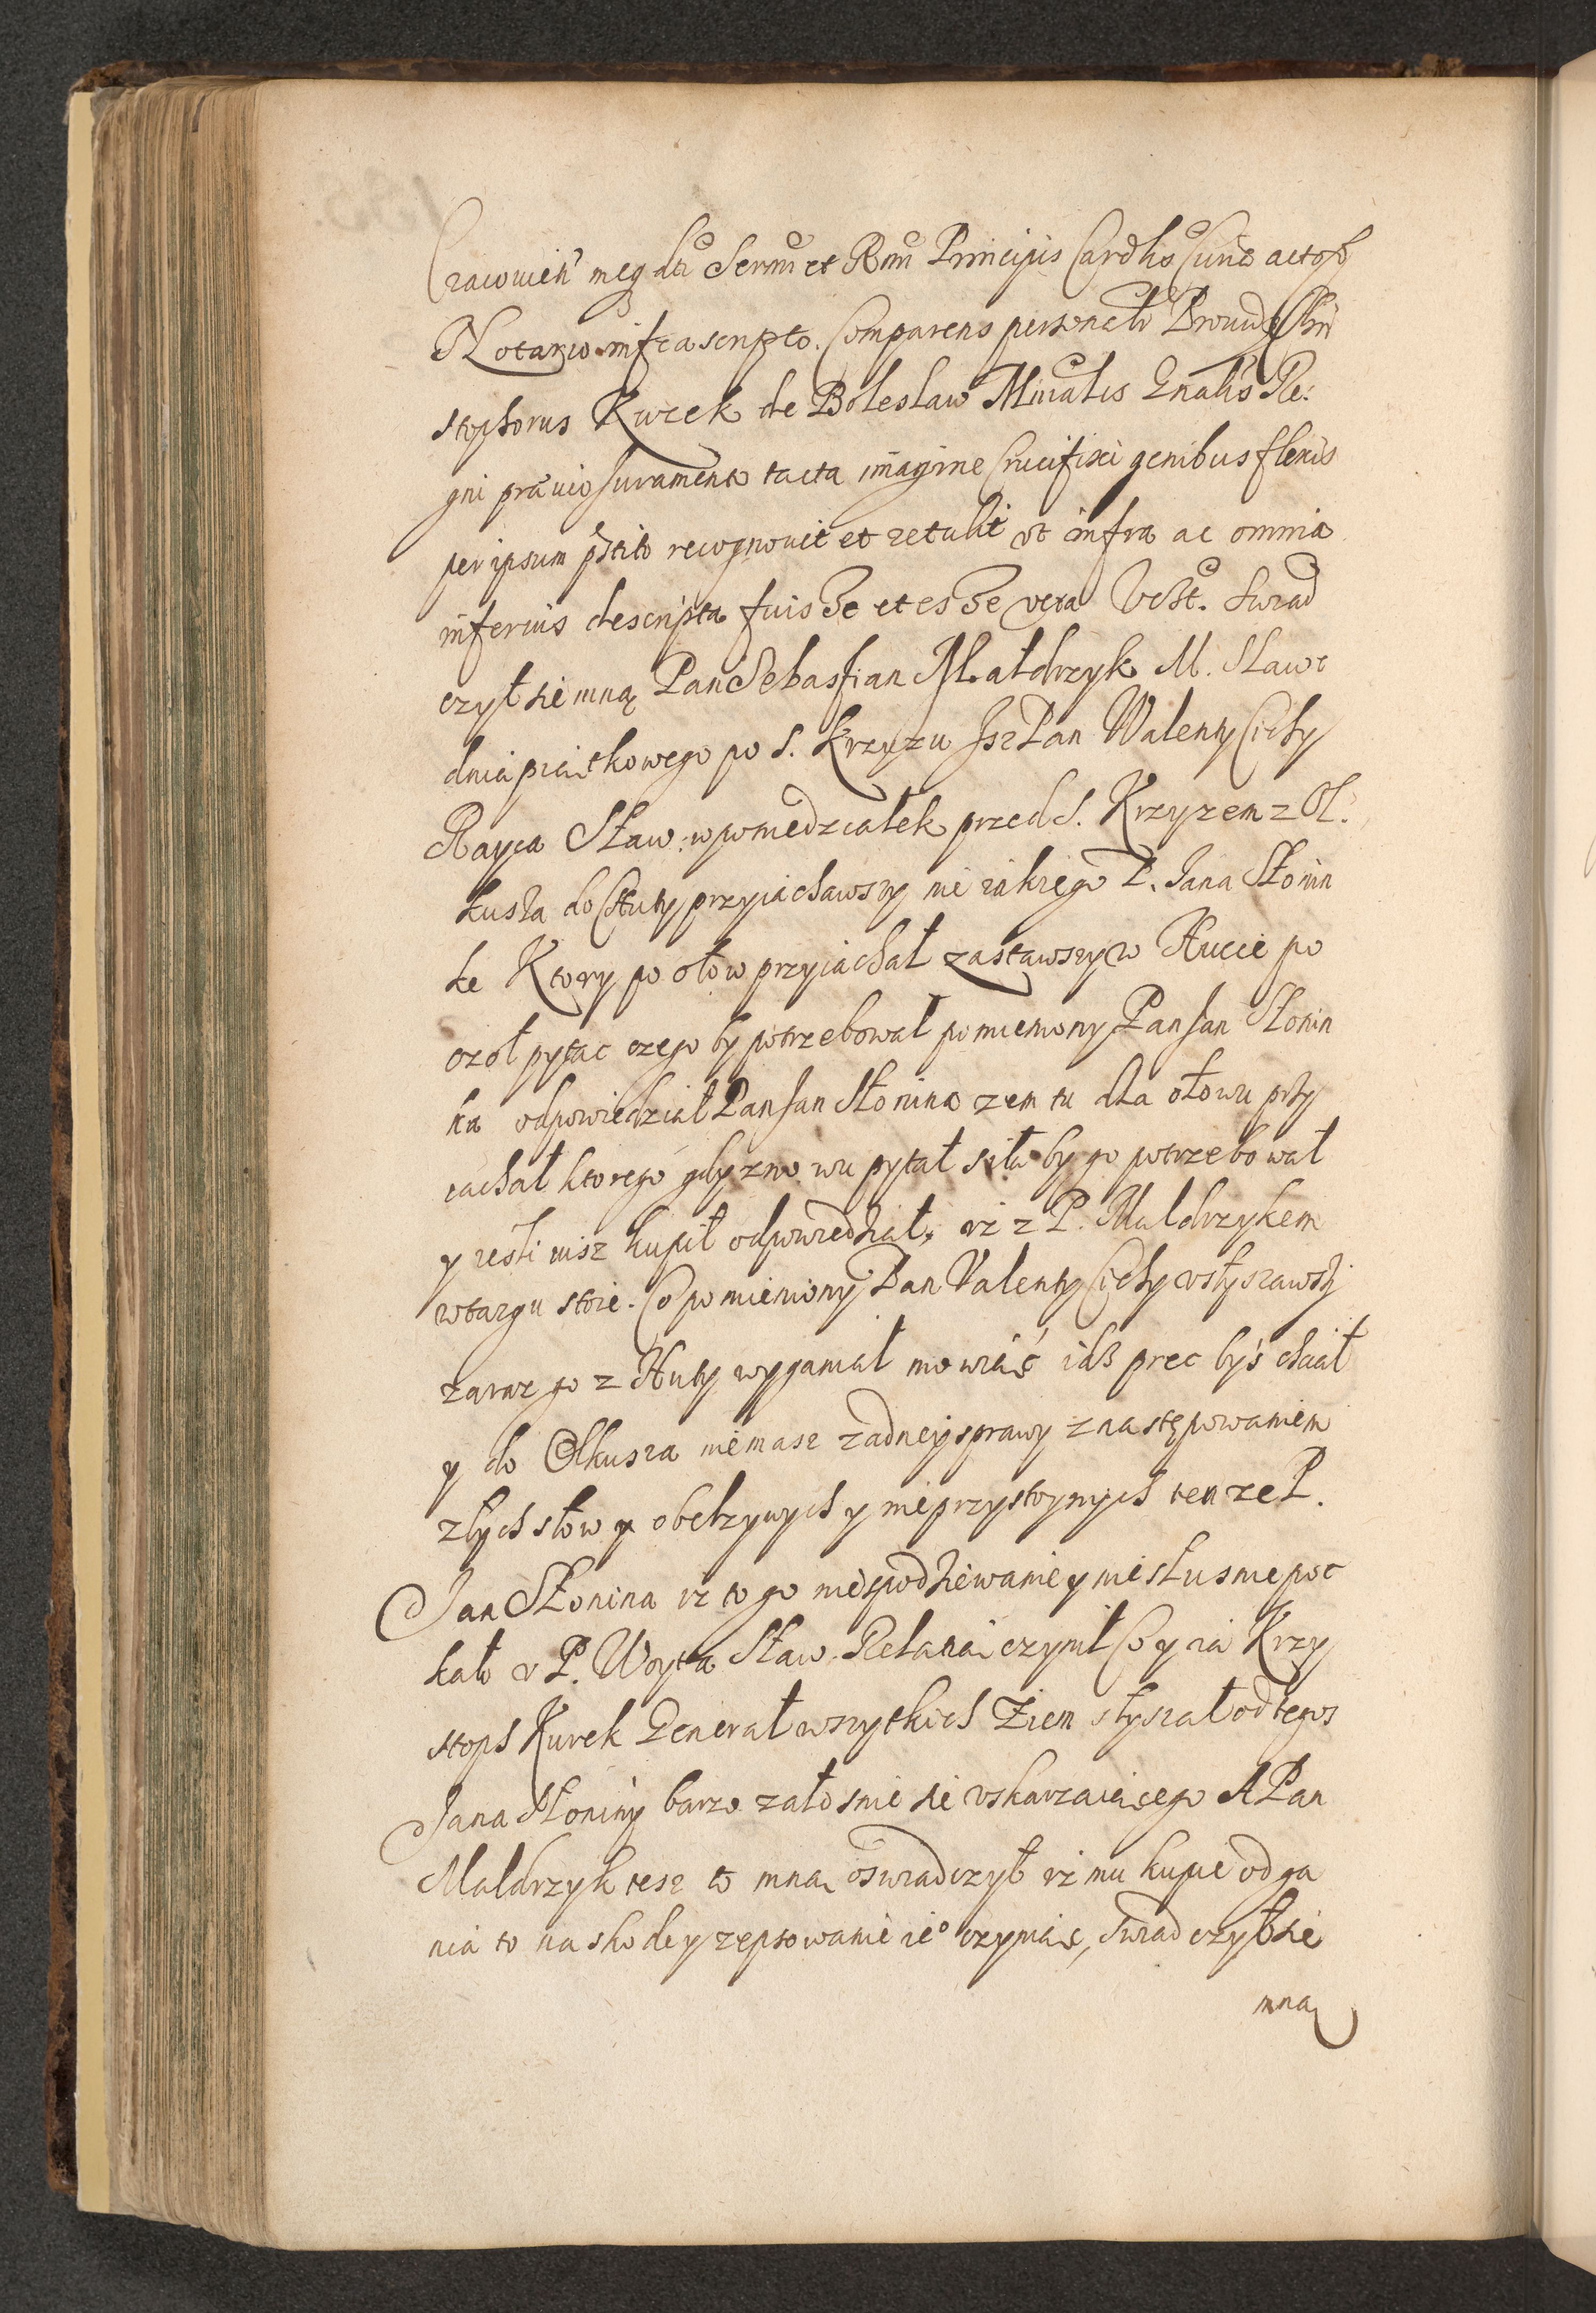 Cracovien' meq dti Sermi et Rmi Principis Cardlis Curiæ actor
Notario infrascripto. Comparens personalr Provid Chri
stophorus Kurek de Boleslaw Mnralis Gnalis Re:
gni prævio Juramento tacta imagine Crucifixi genibus flexis
per ipsum pstito recognouit et retulit vt infra ac omnia
inferius descripta fuisse et esse vera Vdlt. Swiad
czył sie mną Pan Sebastian Maldrzyk M. Sławc
dnia piątkowego po S. Krzyzu Jsz Pan Walenty Cichy
Rayca Sław: w poniedziałek przed S. Krzyzem z Ol:
kusza do Huty przyiachawszy nieiakiego P. Jana Słonin
ke Ktory po ołow przyiachał zastawszy w Hucie po
czół pytac czego by potrzebował pomieniony Pan Jan Słonin
ka odpowiedział Pan Jan Słonina zem tu dla ołowu przy
iachał ktorego gdy znowu pytał siła by go potrzebował
y iesli iusz kupił odpowiedział, iż z P. Maldrzykem
w targu stoie. Co pomieniony Pan Valenty Cichy vsłyszawszy
zaraz go z Huty wyganiał mowiąć idz prec byś chciał
y do Olkusza niemasz żadney sprawy z nastę powaniem
złych słow y obelzywych y nieprzystoynych tenze P.
Jan Słonina iż to go niespodziewanie y niesłusznie poc
kało v P. Woyta Sław. Relatią czynił Co y ia Krzy
stoph Kurek Generał wszytkich Ziem słyszał od tegoz
Jana Słoniny barzo załosnie sie vskarzaiącego A Pan
Maldrzyk tesz to mną oswiadczył iż mu kupie odga
nia to na skode y zepsowanie ieo czyniąc, swiadczył sie
mną